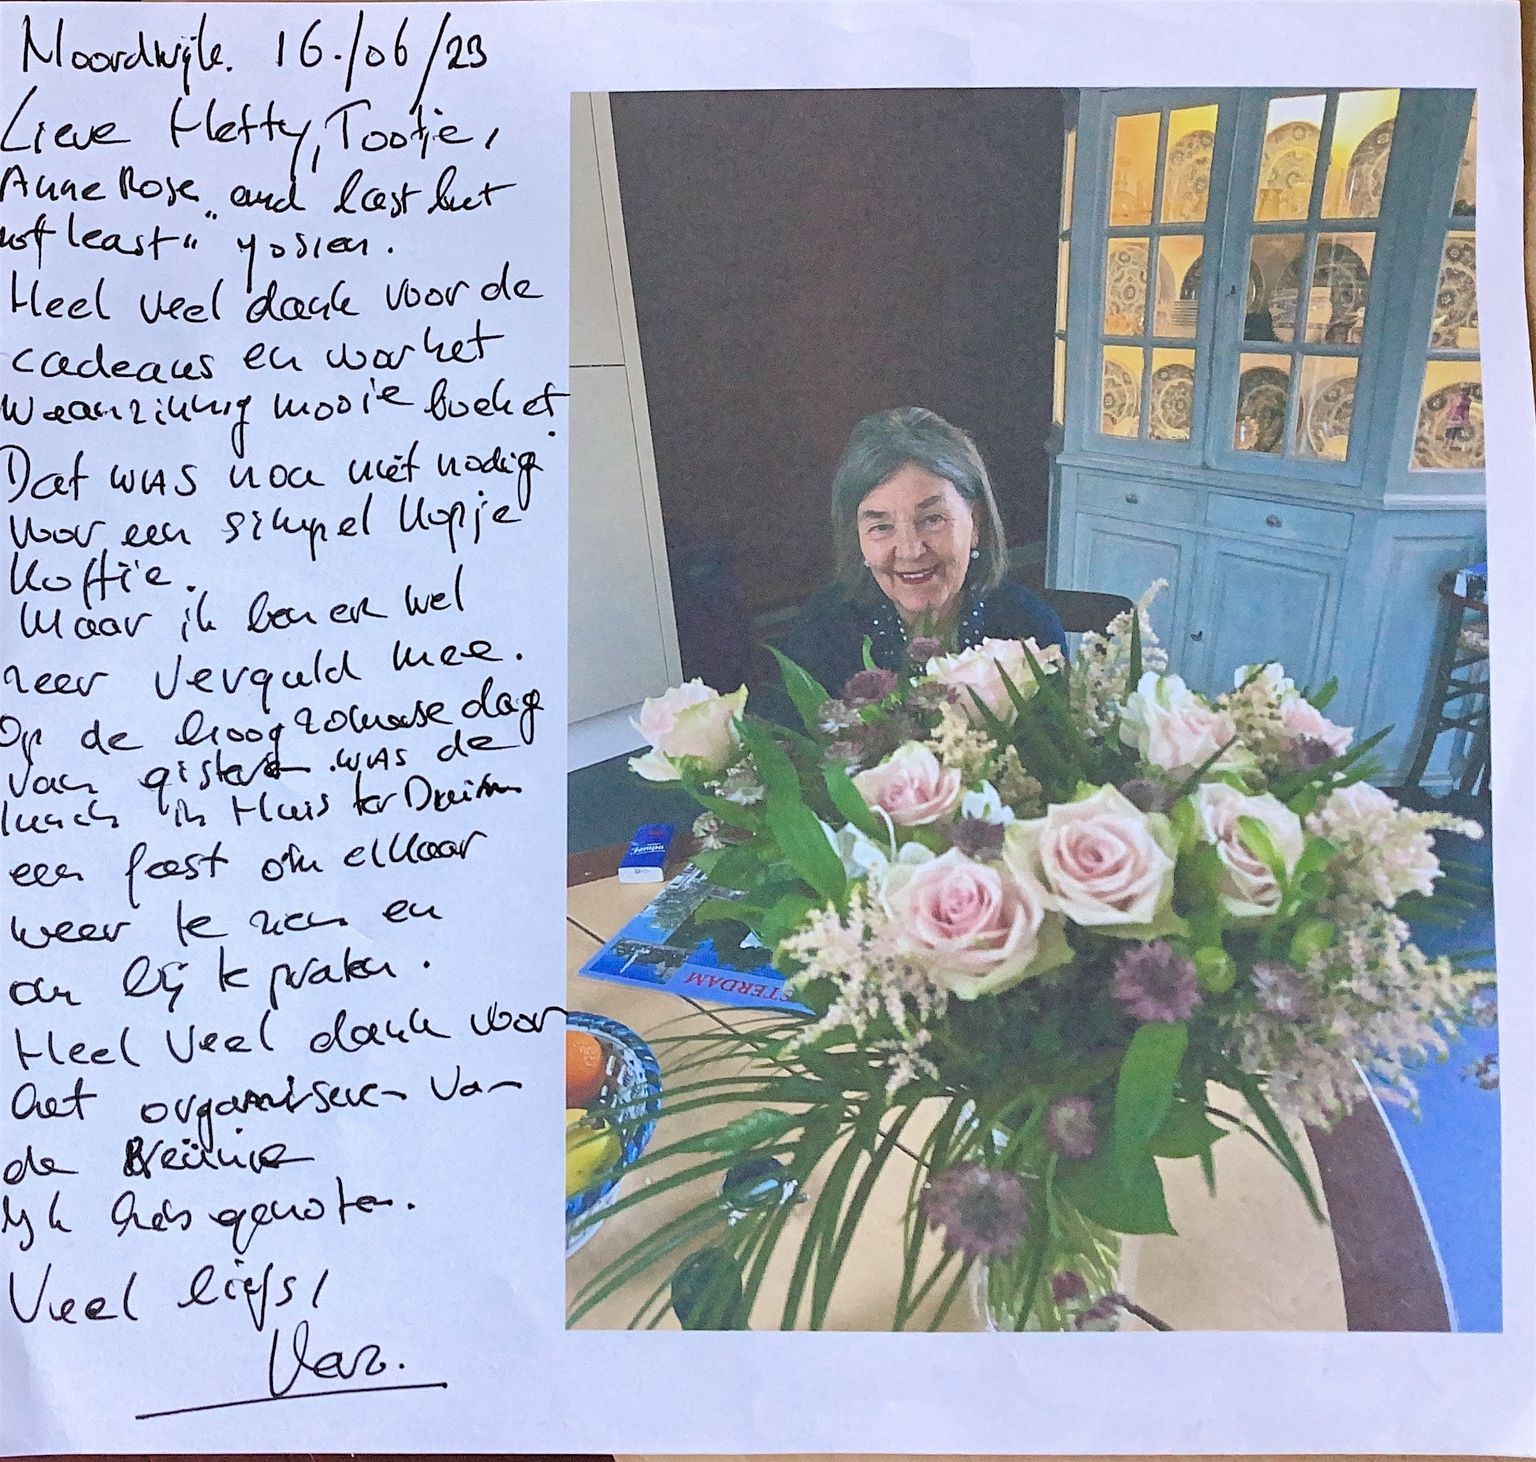 Noordwijk. 16./06/23
Lieve Hetty, Tootje,
Anne Rose "and last but
not least" Yosien.
Heel veel dank voor de
cadeaus en voor het
waanzinnig mooie boeket.
Dat was nou niet nodig
voor een simpel kopje
koffie.
Maar ik ben er wel
zeer verguld mee.
Op de hoogzomerse dag
van gisteren was de
lunch in Huis ter Duin
een feest om elkaar
weer te zien en
om bij te praten.
Heel veel dank voor
het organiseren van
de Reünie
Ik heb genoten.
Veel liefs,
STERDAM